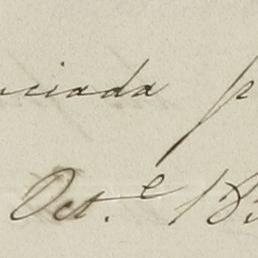 ciada p
Oct.e 18